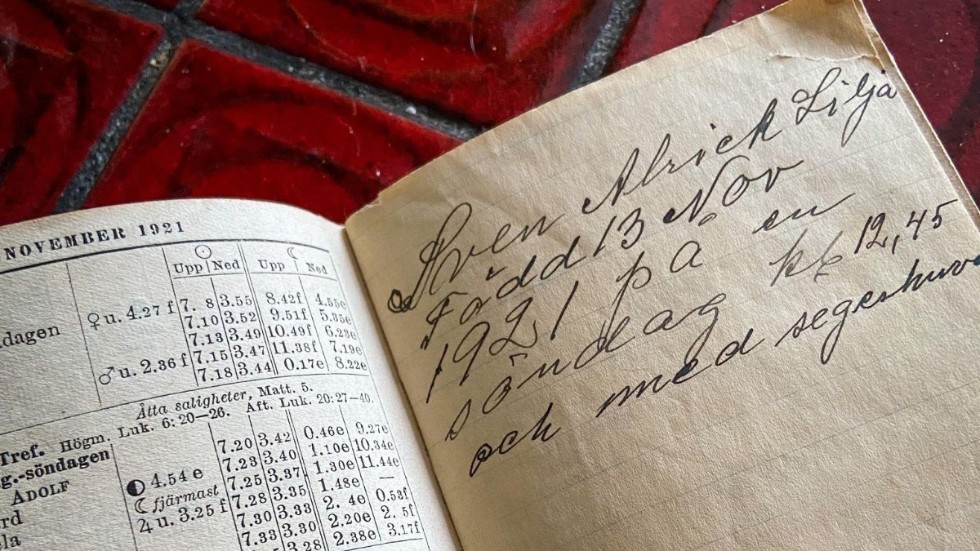 NOVEMBER 1921
☉ ☾
Upp Ned Upp Ned
dagen
♀ u. 4.27 f 7. 8 3.55 8.42f 4.55e
7.10 3.52 9.51f 5.35e
7.13 3.49 10.49f 6.23e
7.15 3.47 11.38f 7.19e
♂ u. 2.36 f 7.18 3.44 0.17e 8.22e
Åtta saligheter, Matt. 5.
Tref. Högm. Luk. 6:20—26. Aft. Luk. 20:27—40.
g.-söndagen 7.20 3.42 0.46e 9.27e
ADOLF ◐ 4.54 e 7.23 3.40 1.10e 10.34e
rd ☾ fjärmast 7.25 3.37 1.30e 11.44e
♃ u. 3.25 f 7.28 3.35 1.48e —
la 7.30 3.33 2. 4e 0.53f
7.33 3.30 2.20e 2. 5f
3.28 2.38e 3.17f
Sven Alrick Lilja
Född 13 Nov
1921 på en
söndag kl 12,45
och med segershuva